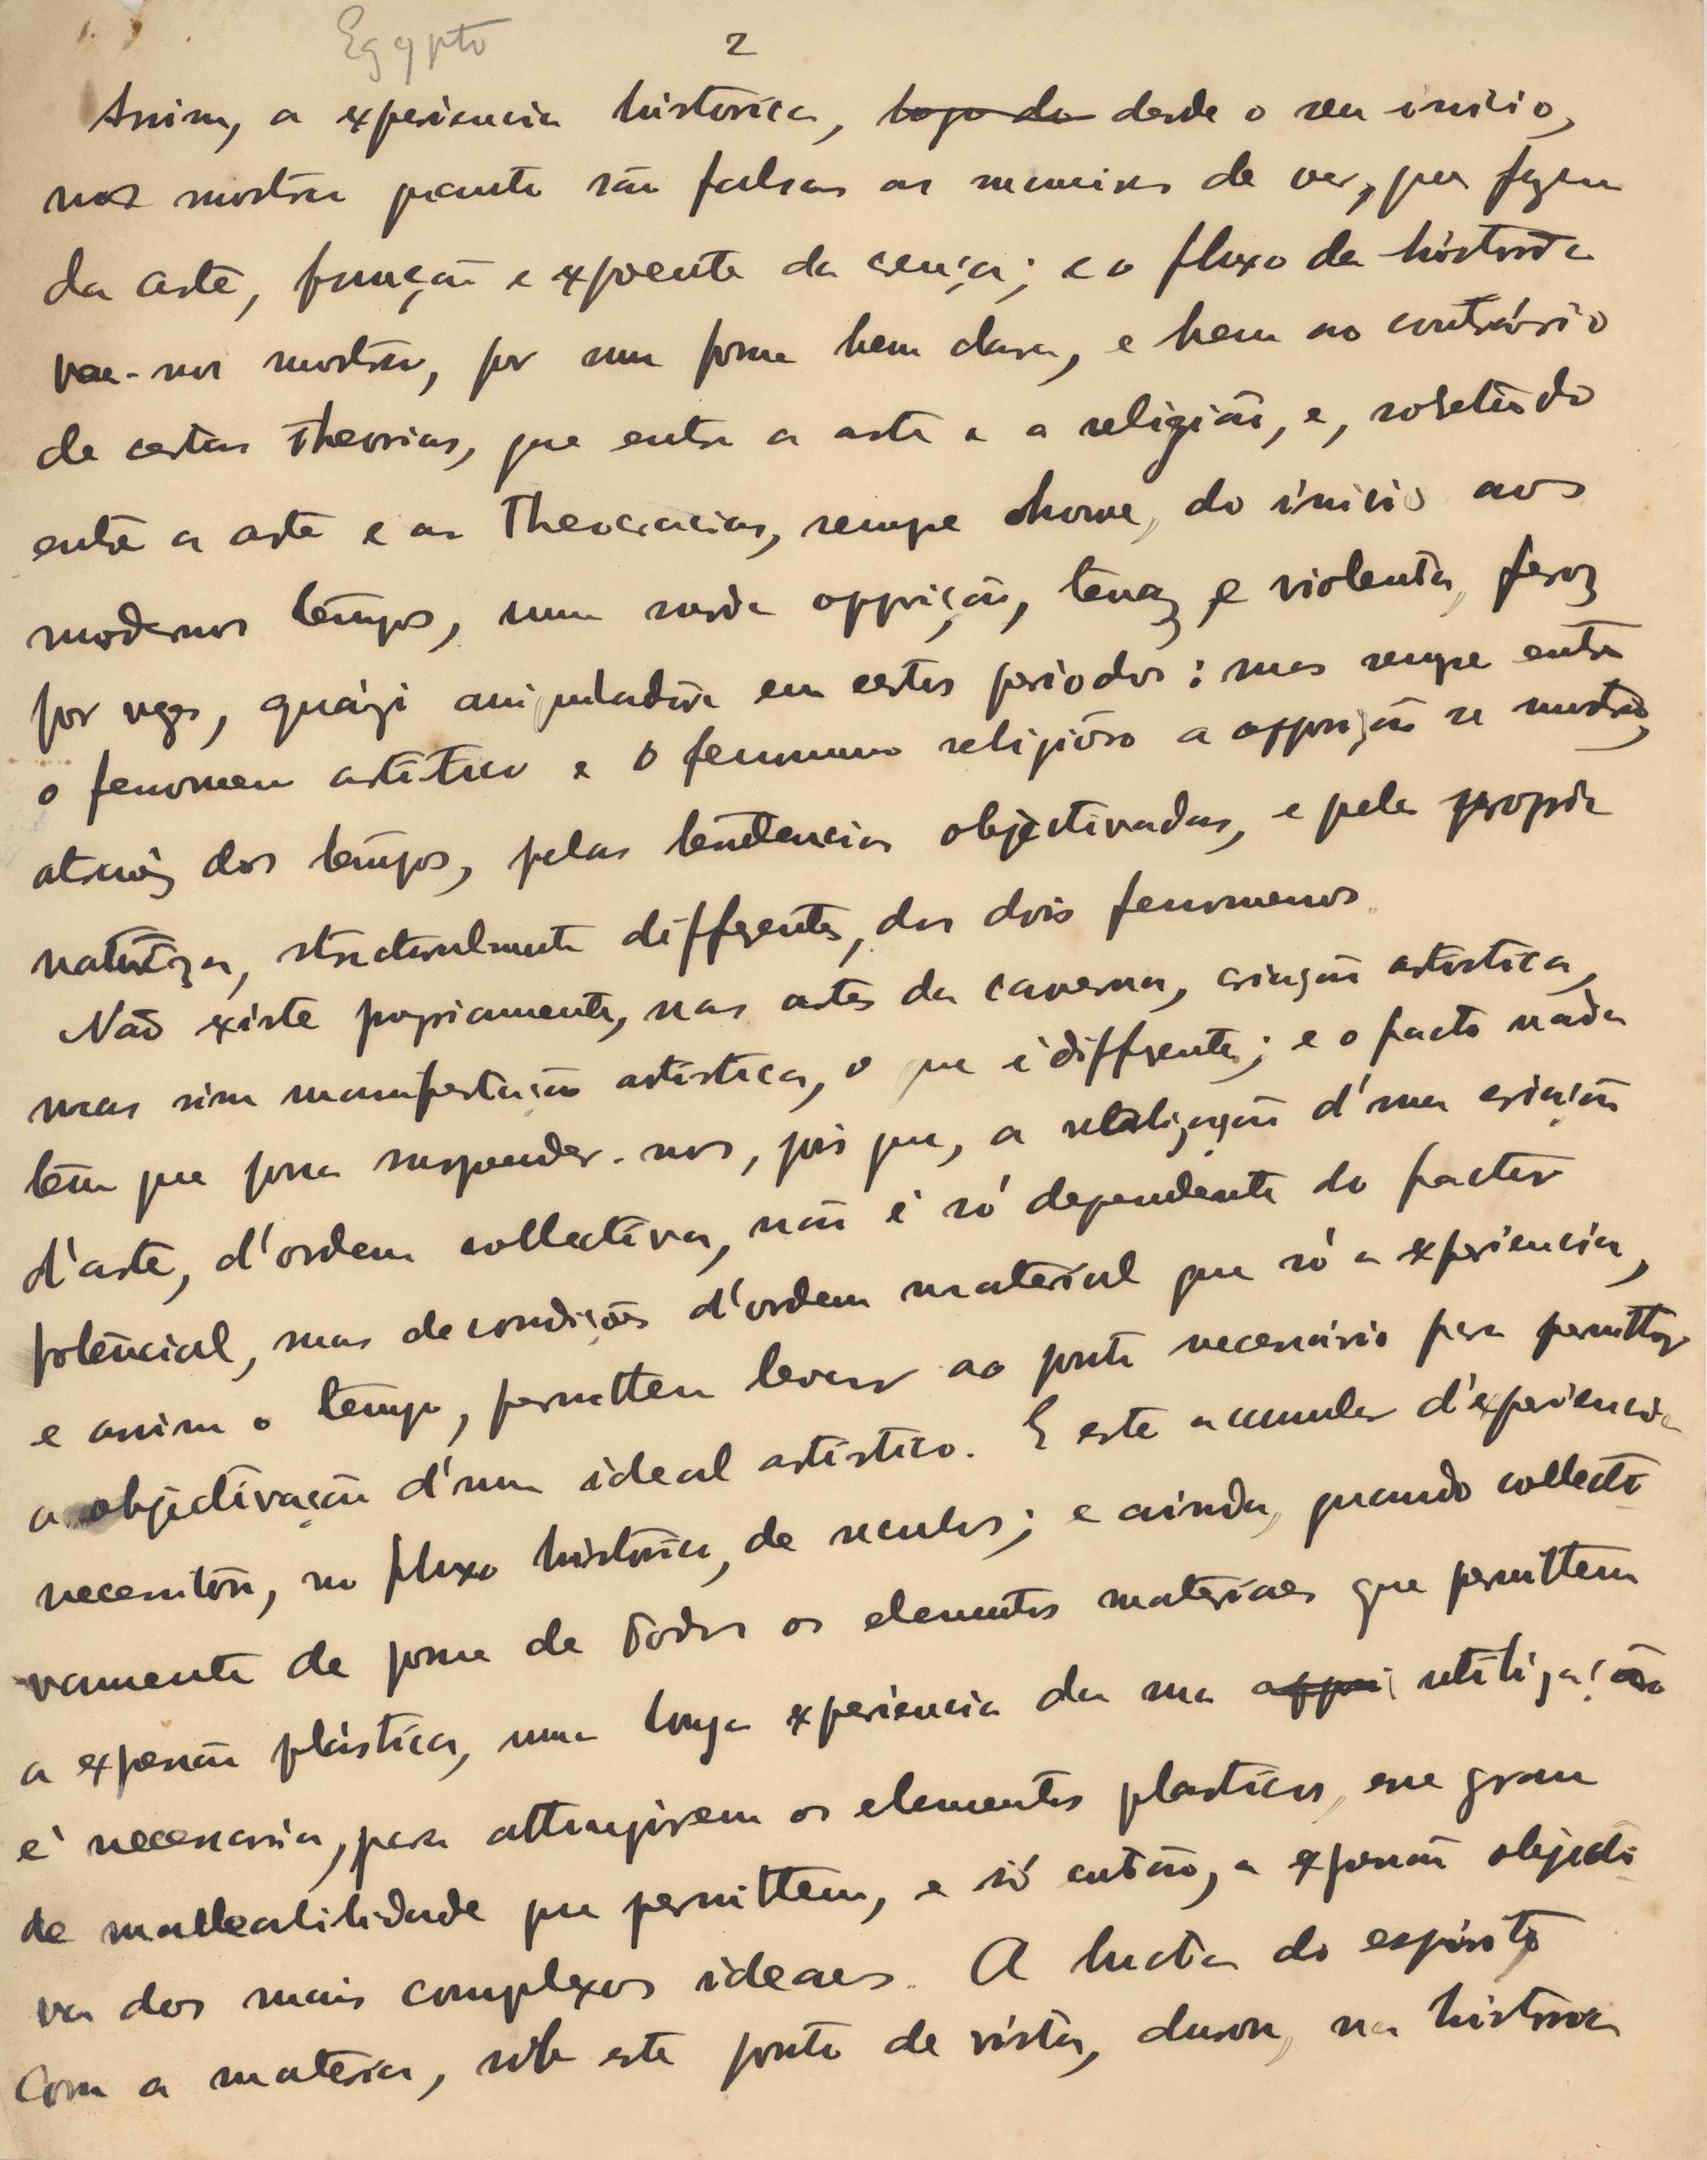 Egypto
2
Assim, a experiencia historica, logo do desde o seu inicio,
nos mostra quanto são falsas as maneiras de ver, que fazem
da arte, funcção e expoente da crença; e o fluxo da historia
vae-nos mostrar, por uma forma bem clara, e bem ao contrário
de certas theorias, que entre a arte e a religião, e, sobretudo
entre a arte e as Theocracias, sempre houve, do inicio aos
modernos tempos, uma surda opposição, tenaz e violenta, feroz
por vezes, quázi aniquiladora em certos periodos: mas sempre entre
o fenomeno artistico e o fenomeno religioso a opposição se mostrou,
através dos tempos, pelas tendencias objectivadas, e pela propria
natureza, structuralmente differente, dos dois fenomenos.
Não existe propriamente, nas artes da caverna, criação artistica,
mas sim manifestação artistica, o que é differente; e o facto nada
tem que possa surprender-nos, pois que, a realização d'uma criação
d'arte, d'ordem collectiva, não é só dependente do factor
potencial, mas de condições d'ordem material que só a experiencia,
e assim o tempo, permittem levar ao ponto necessário para permittir
a objectivação d'um ideal artistico. E este accumular d'experiencia
necessitou, no fluxo historico, de seculos; e ainda, quando collecti
vamente de posse de todos os elementos materiaes que permittem
a expressão plástica, uma longa experiencia da sua utilização
é necessaria, para attingirem os elementos plasticos, esse grau
de malleabilidade que permittem, e só então, a expressão objecti
va dos mais complexos ideaes. A lucta do espirito
com a materia, sob este ponto de vista, durou, na historia